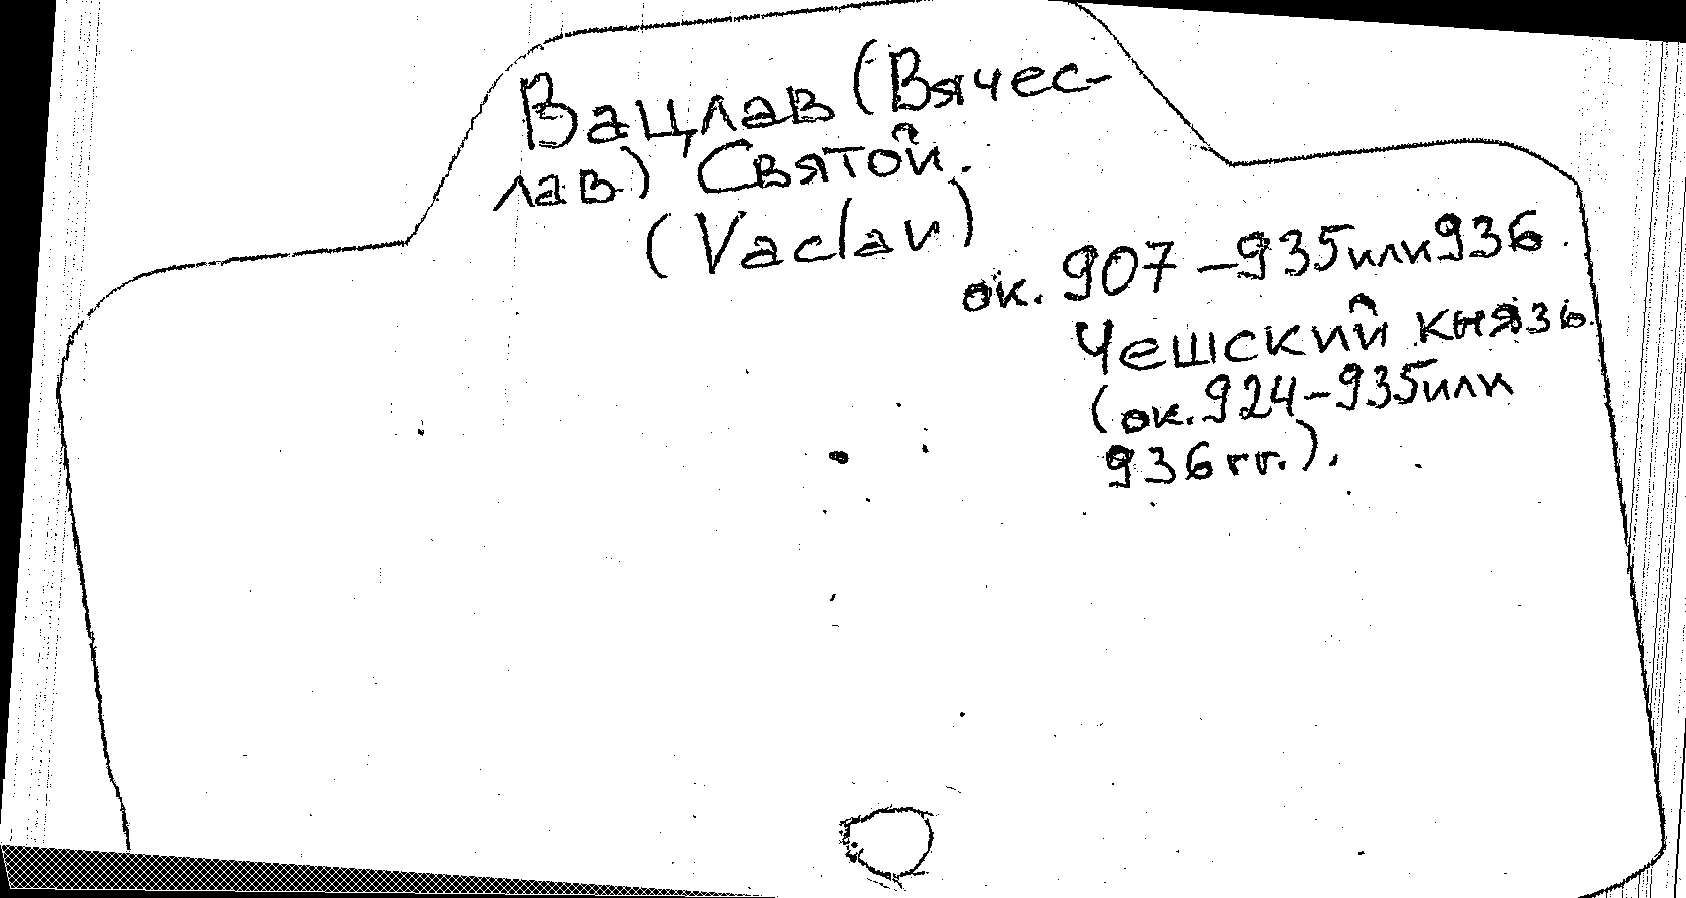 Вацлав (Вячес-
лав) Святой.
(Vaclav)
ок. 907 – 935 или 936.
Чешский князь
(ок. 924 – 935 или
936 гг.).